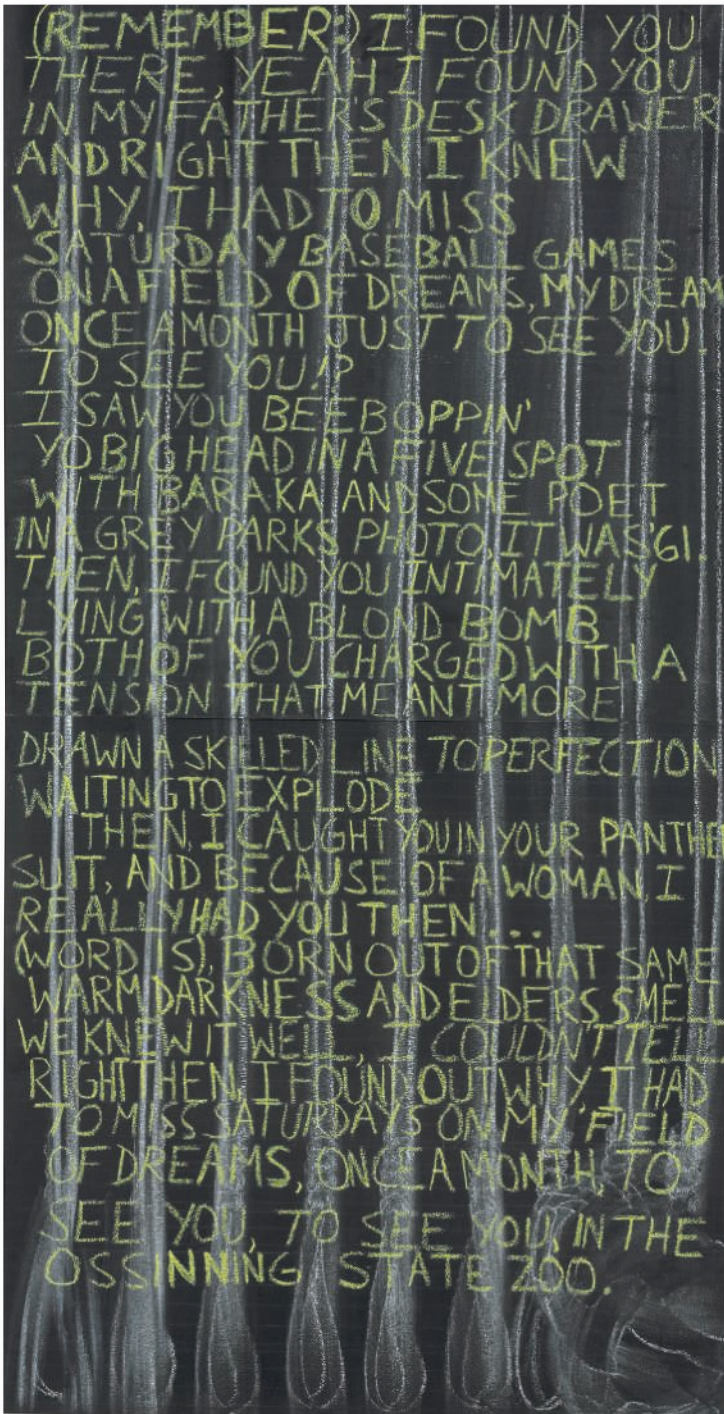 (REMEMBER:) I FOUND YOU
THERE, YEAH I FOUND YOU
IN MY FATHER'S DESK DRAWER
AND RIGHT THEN I KNEW
WHY, I HAD TO MISS
SATURDAY BASEBALL GAMES
ON A FIELD OF DREAMS, MY DREAM
ONCE A MONTH JUST TO SEE YOU.
TO SEE YOU!?
I SAW YOU BEEBOPPIN'
YO BIG HEAD IN A FIVE SPOT
WITH BARAKA AND SOME POET
IN A GREY PARKS PHOTO, IT WAS '61.
THEN, I FOUND YOU INTIMATELY
LYING WITH A BLOND BOMB
BOTH OF YOU CHARGED WITH A
TENSION THAT MEANT MORE
DRAWN A SKILLED LINE TO PERFECTION
WAITING TO EXPLODE
THEN, I CAUGHT YOU IN YOUR PANTHE
SUIT, AND BECAUSE OF A WOMAN, I
REALLY HAD YOU THEN...
(WORD IS), BORN OUT OF THAT SAME
WARM DARKNESS AND ELDERS SMELL
WE KNEW IT WELL, I COULDN'T TELL
RIGHT THEN, I FOUND OUT WHY, I HAD
TO MISS SATURDAYS ON MY FIELD
OF DREAMS, ONCE A MONTH, TO
SEE YOU, TO SEE YOU, IN THE
OSSINNING STATE ZOO.